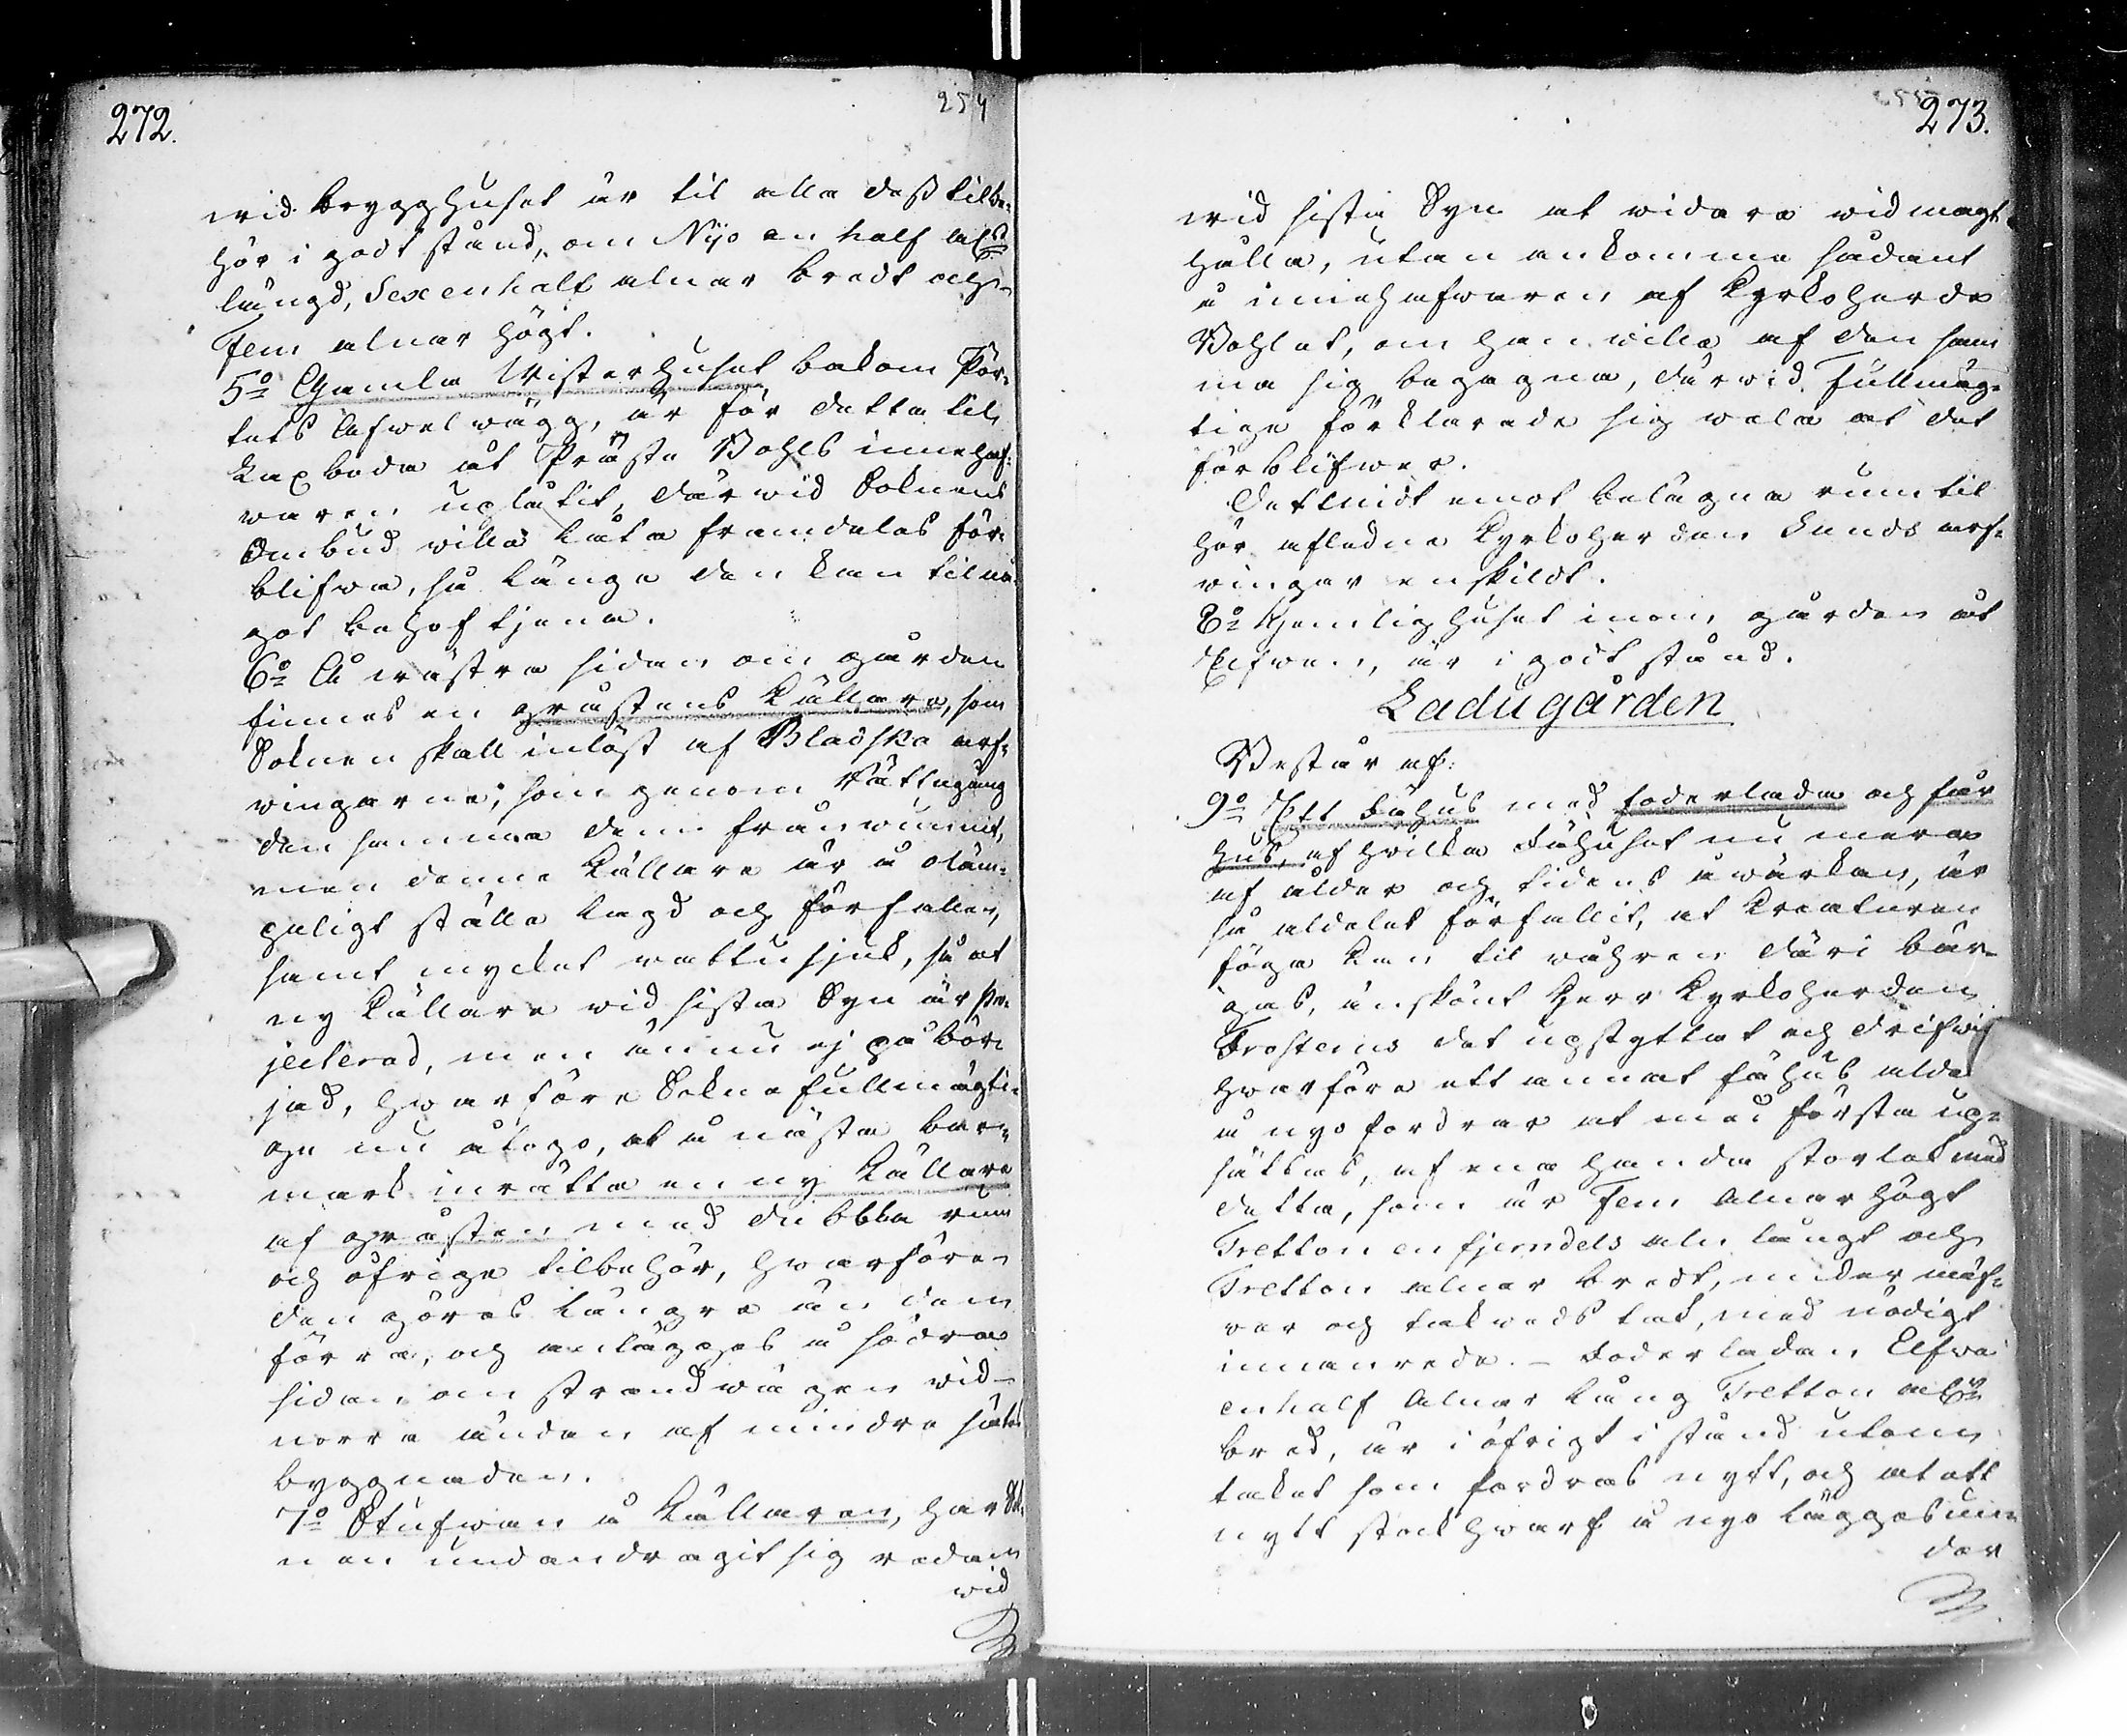 272.
254
wid brygghuset är til alla dess tilbe-
hör i godt stånd, om Nijo en half aln:s
längd, Sex en half alnar bredt och
Fem alnar högt.
5:o Gamla Wisterhuset bakom Pör-
tets Gafwel wägg, är för detta til
bod åt Präste Bohls innehaf-
waren uplåtit, därwid Soknens
Ombud wille låta framdeles för-
blifwa, så länge den kan til nå-
got behof tjena.
6:o Å wästra sidan om gården
finnes en gråstens Källare, som
Soknen skall inlöst af Bladska arf-
wingarne, som genom Rättegång
den samma dem frånwunnit,
men denne Källare är å oläm-
peligt ställe lagd och förfallen,
samt mycket wattusjuk, så at
ny Källare wid sista Syn är pro-
jecterad, men ännu ej på bör-
jad, hwarföre Sokne fullmägti-
ge nu åtogo, at å nästa bar-
mark inrätta en ny Källare
af gråsten med dubbla rum
och öfrige tilbehör, hwarföre
den göres längre än den
förra, och anlägges å södra
sidan om strandwägen wid
norra ändan af mindre sätes
byggnaden.
7:o Stufwan å Källaren, har Sok-
nen undandragit sig redan
wid
273.
wid sista Syn at widare wid magt
hålla, utan ankomme sådant
å innehafwaren af Kyrkoherde
Bohlet, om han wille af den sam
ma sig begagna, därwid Fullmäg-
tige förklarade sig wela at det
förblifwer.
Detmidt emot belägne rum til
hör afledne Kyrkoherden Lunds arf-
wingar enskildt.
8:o Hemlighuset inom gården åt
Elfwen, är i godt stånd.
Ladugården
Består af:
9:o Ett Fähus med foderlada och får
hus, af hwilka Fähuset nu mera
af ålder och tidens åwärkan, är
så aldeles förfallit, at Kreaturen
föga kan til wåhren däri bär-
gas, änskönt Herr Kyrkoherden
Frosterus det upstyttat och drifwit
hwarföre ett annat fähus alde
å nyo fordrar at med första up-
sättas, af ena handa storlek med
detta, som är Fem Alnar högt
Tretton en fjerndels aln långt och
Tretton alnar bredt, under näf-
wer och takweds tak, med nödigt
innanrede. - Foderladan Elfwa
en half Alnar lång Tretton aln:r
bred, är i öfrigt i stånd utom
taket som fordras nytt, och at ett
nytt stockhwarf å nyo lägges un-
der